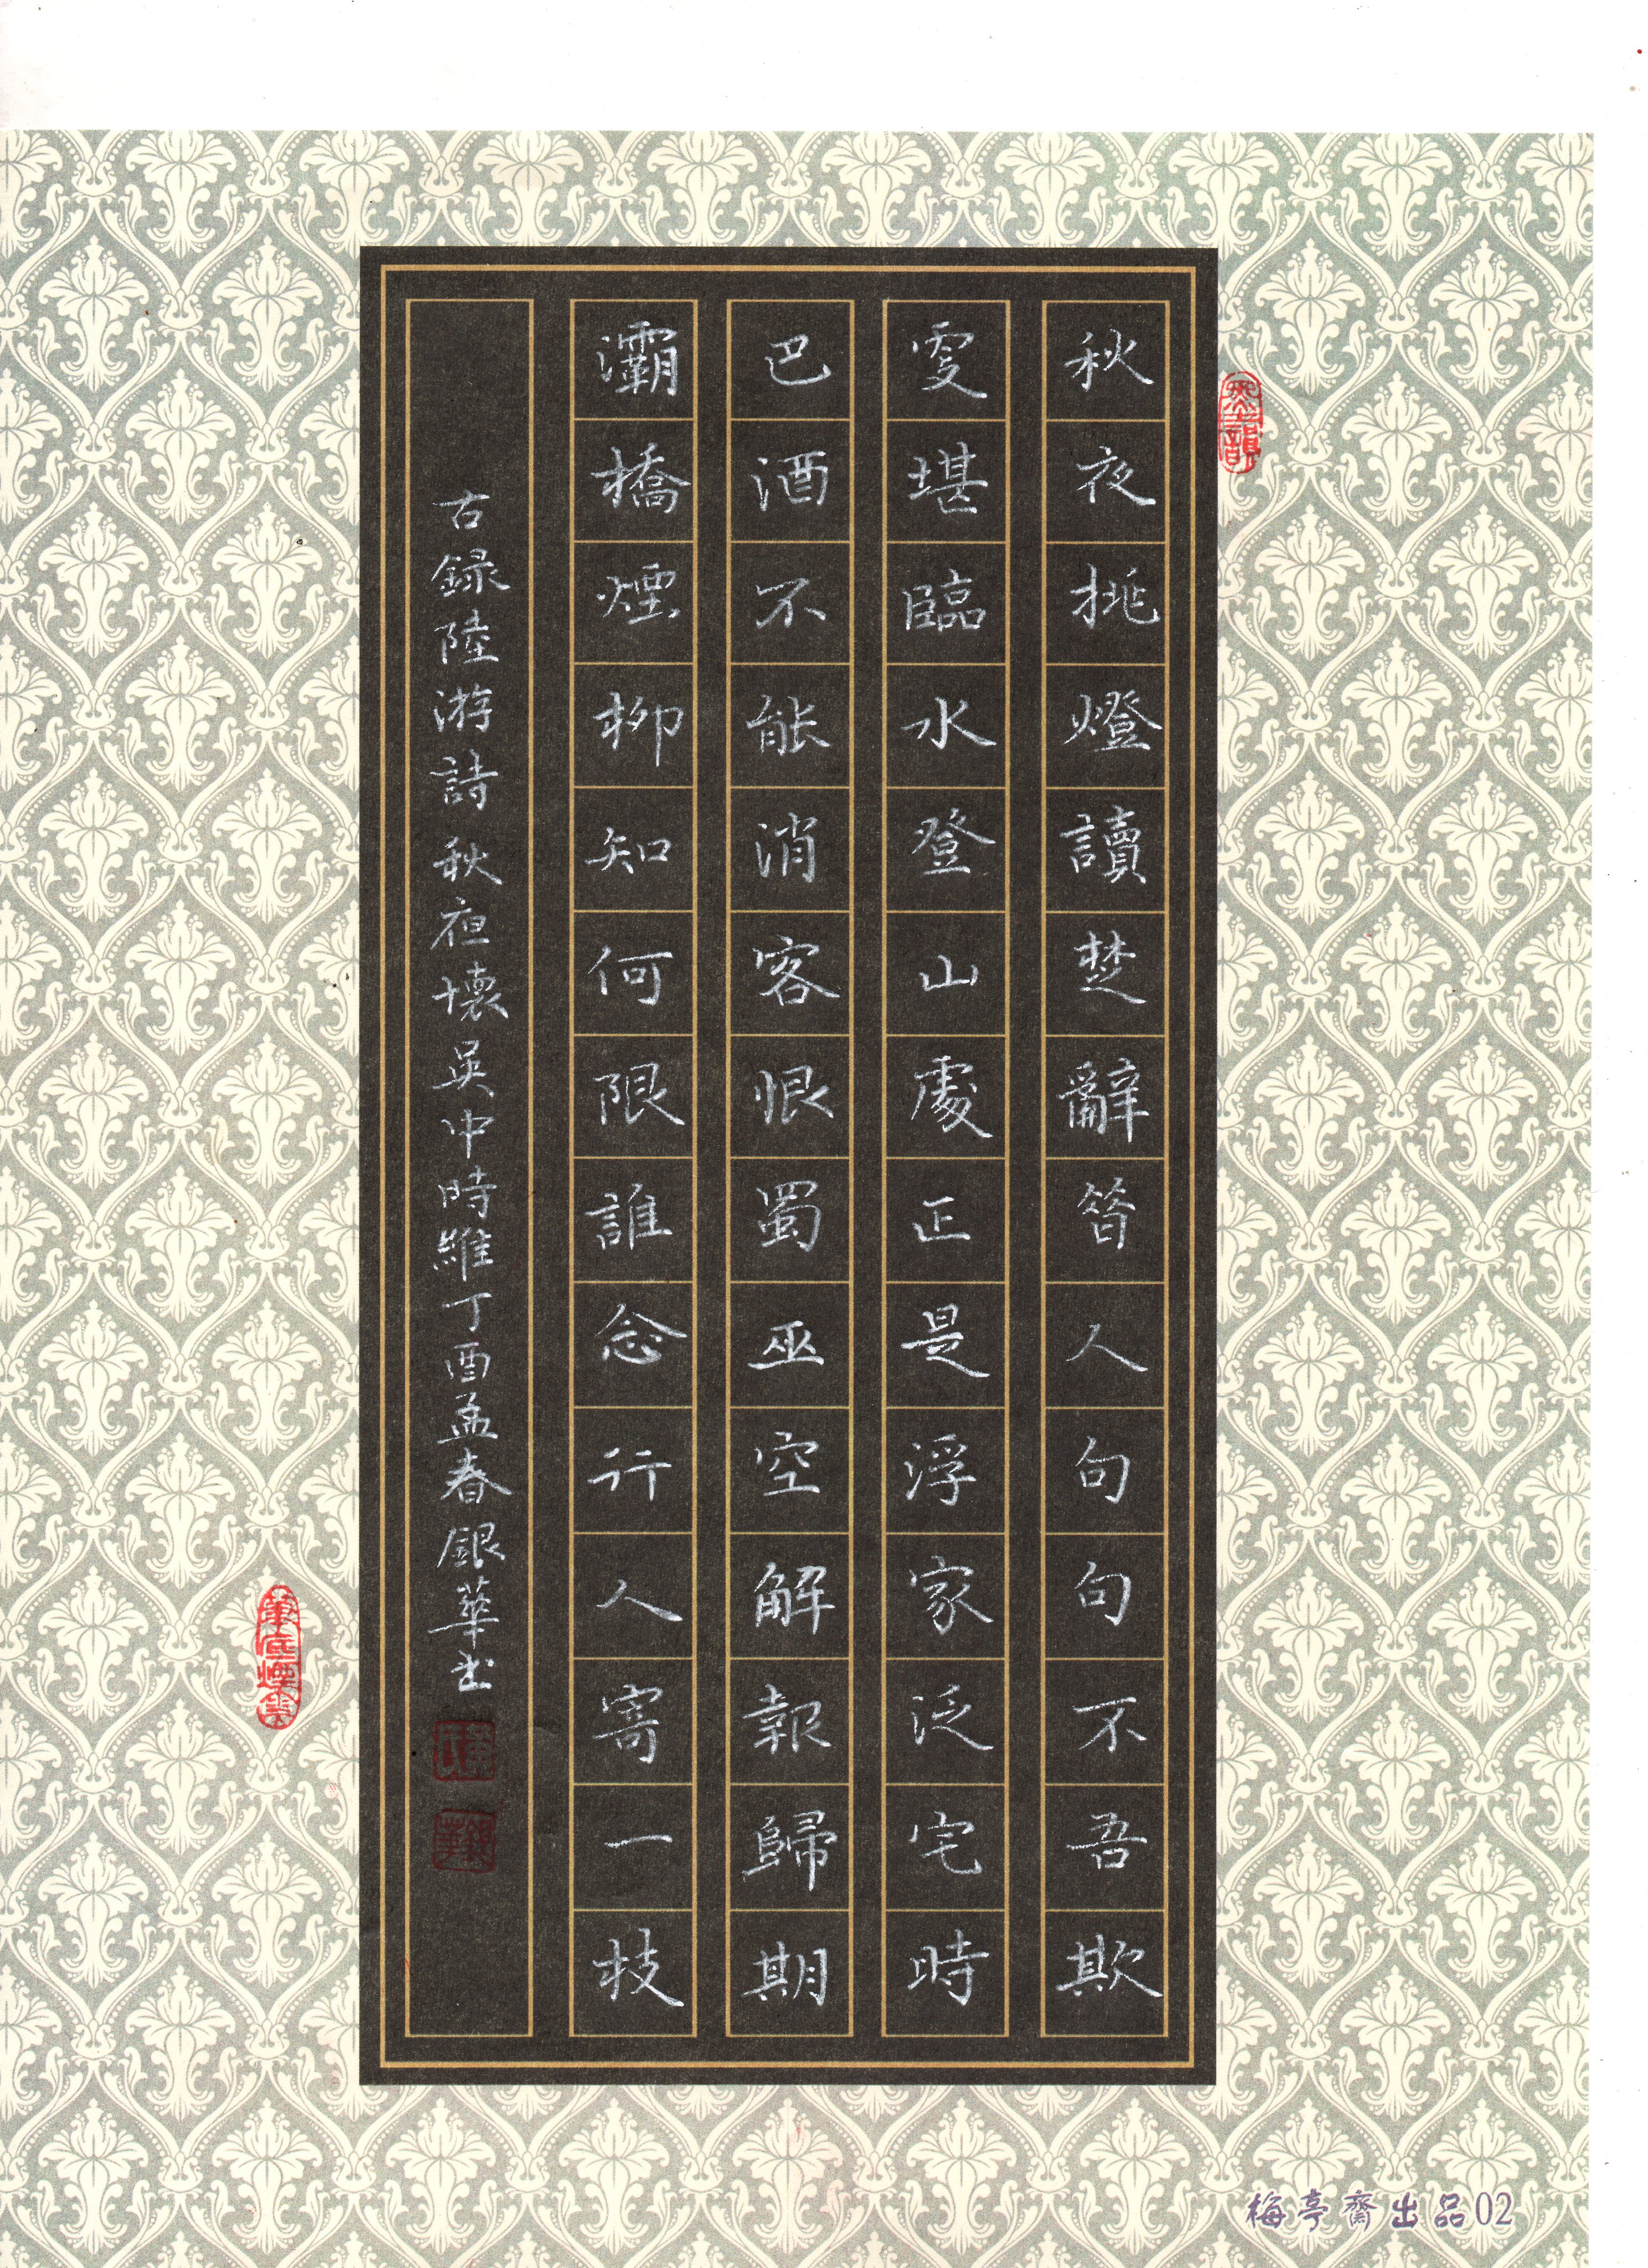 秋夜挑燈讀楚辭昝人句句不吾欺
更堪臨水登山處正是浮家泛宅時
巴酒不能消客恨蜀巫空解報歸期
灞橋煙柳知何限誰念行人寄一枝
古錄陸游詩秋夜懷吳中時維丁酉孟春銀華书
梅亭齋出品02